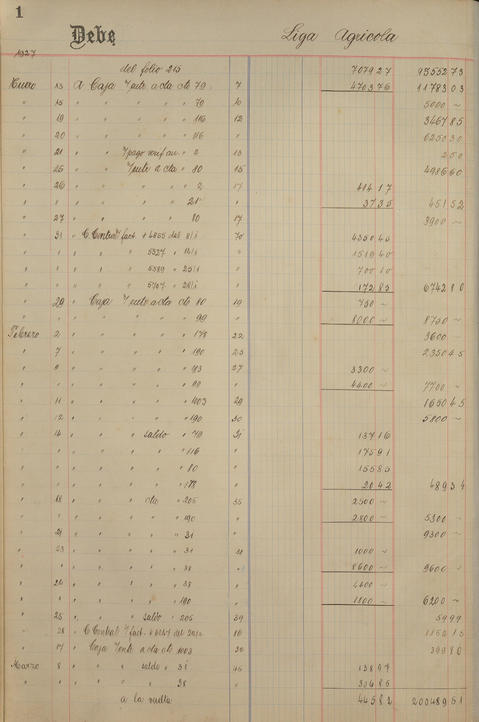 1
Debe Liga Agricola
1927
del folio 215 707927 9555273
Enero 13 A Caja 79 7 470376 1178303
" 15 " " " " 70 10 5000 ~
" 19 " " " " 116 12 346785
" 20 " " " " 116 " 625030
" 21 " " 2 13 250
" 25 " " 80 15 498660
" 26 " " " " 2 17 41417
" " " " " " 21 " 3735 45152
" 27 " " " " 80 17 3900 ~
" 31 " C. Central fact. 4855 del 8/1 70 435045
" " " " 5327 " 14/1 " 151940
" " " " 5389 " 25/1 " 70010
" " " " 5767 " 28/1 " 17285 674280
" 29 " Caja cta cte 10 19 750 ~
" " " " " " 99 " 8000 ~ 8750 ~
Febrero 2 " " " " 178 22 3600
" 7 " " " " 190 25 235045
" 9 " " " " 93 27 3300 ~
" " " " " " 99 " 4400 ~ 7700 ~
" 11 " " " " 1003 29 165045
" 12 " " " " 190 30 5800 ~
" 14 " " " saldo " 79 31 13716
" " " " " " 116 " 17591
" " " " " " 80 " 15585
" " " " " " 178 " 2042 48934
" 18 " " " cta " 205 35 2500 ~
" " " " " " 190 " 2800 ~ 5300 ~
" 21 " " " " 31 " 9300 ~
" 23 " " " " 31 38 1000 ~
" " " " " " 38 " 8600 ~ 9600 ~
" 24 " " " " 38 " 4400 ~
" " " " " " 190 " 1800 ~ 6200 ~
" 25 " " " saldo " 205 39 5999
" 28 " C. Central fact. 18 115215
" 17 " Caja a cta cte 1003 39980
Marzo 8 " " " saldo " 31 45 13897
" " " " " " 38 " 30685
a la vuelta 44582 20048951